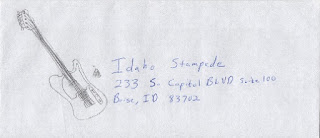 Idaho Stampede
233 S. Capitol BLVD Suite 100
Boise, ID 83702